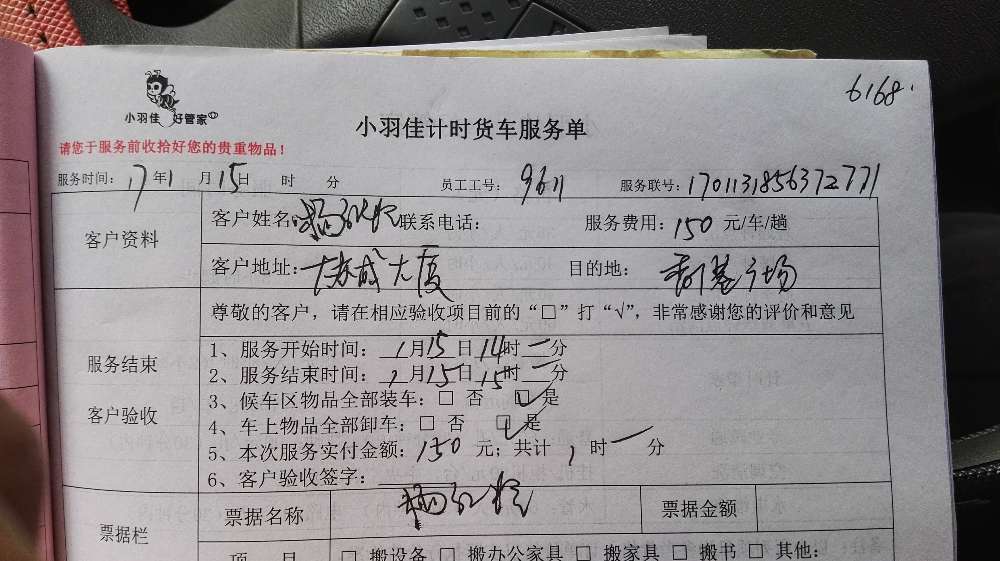 6168.
小羽佳 好管家
小羽佳计时货车服务单
请您于服务前收拾好您的贵重物品！
服务时间：17年1月15日 时 分 员工工号：9611 服务联号：1701131856372771
客户资料
客户姓名： 联系电话： 服务费用：150 元/车/趟
客户地址： 大厦 目的地： 广场
尊敬的客户，请在相应验收项目前的“□”打“√”，非常感谢您的评价和意见
服务结束
客户验收
1、服务开始时间：1月15日14时一分
2、服务结束时间：1月15日15时一分
3、候车区物品全部装车：□ 否 ☑是
4、车上物品全部卸车：□ 否 ☑是
5、本次服务实付金额：150 元；共计 1 时一分
6、客户验收签字：
票据栏
票据名称 票据金额
项 目 □ 搬设备 □ 搬办公家具 □ 搬家具 □ 搬书 □ 其他：